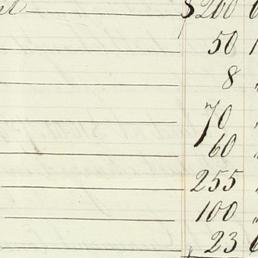 $200
50
8 "
70 "
60 "
255 "
100 "
23